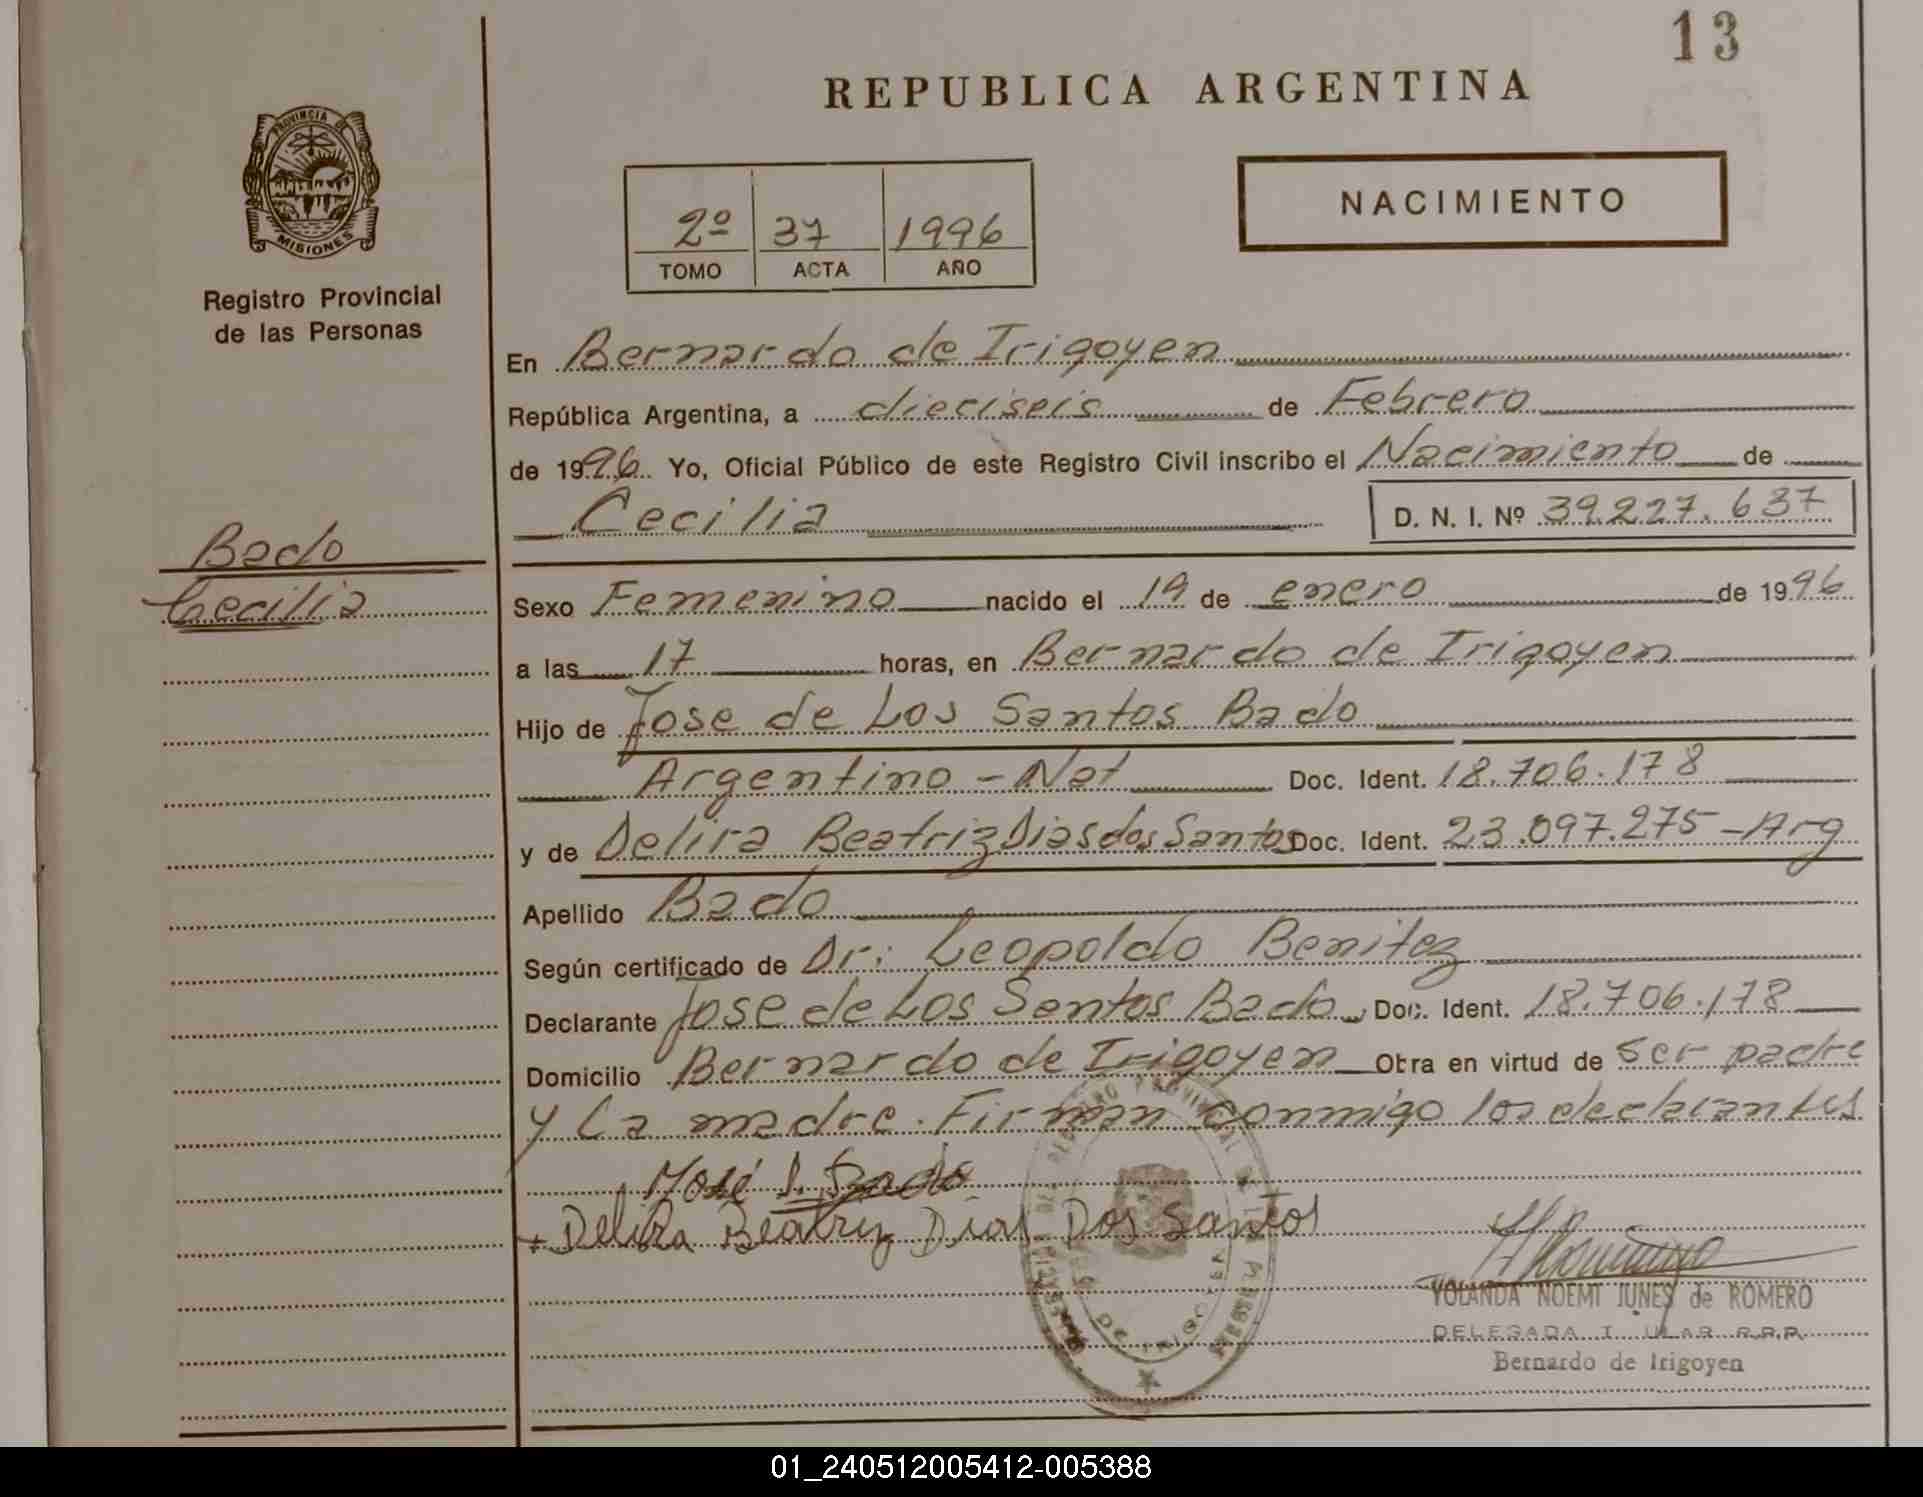 13
REPUBLICA ARGENTINA
PROVINCIA DE
MISIONES
Registro Provincial
de las Personas
2º 37 1996
TOMO ACTA AÑO
NACIMIENTO
En Bernardo de Irigoyen
República Argentina, a dieciseis de Febrero
de 1996 Yo, Oficial Público de este Registro Civil inscribo el Nacimiento de
Cecilia D. N. I. Nº 39.227.637
Bado
Cecilia
Sexo Femenino nacido el 19 de enero de 1996
a las 17 horas, en Bernardo de Irigoyen
Hijo de Jose de Los Santos Bado
Argentino - Nat Doc. Ident. 18.706.178
y de Delira Beatriz Dias dos Santos Doc. Ident. 23.097.275 - Arg
Apellido Bado
Según certificado de Dr: Leopoldo Benitez
Declarante Jose de Los Santos Bado Doc. Ident. 18.706.178
Domicilio Bernardo de Irigoyen Obra en virtud de ser padre
y La madre. Firman conmigo los declarantes
José S. Bado
+ Delira Beatriz Dias Dos Santos
YOLANDA NOEMI JUNES de ROMERO
DELEGADA R.P.P.
Bernardo de Irigoyen
DE IRIGOYEN
01_240512005412-005388